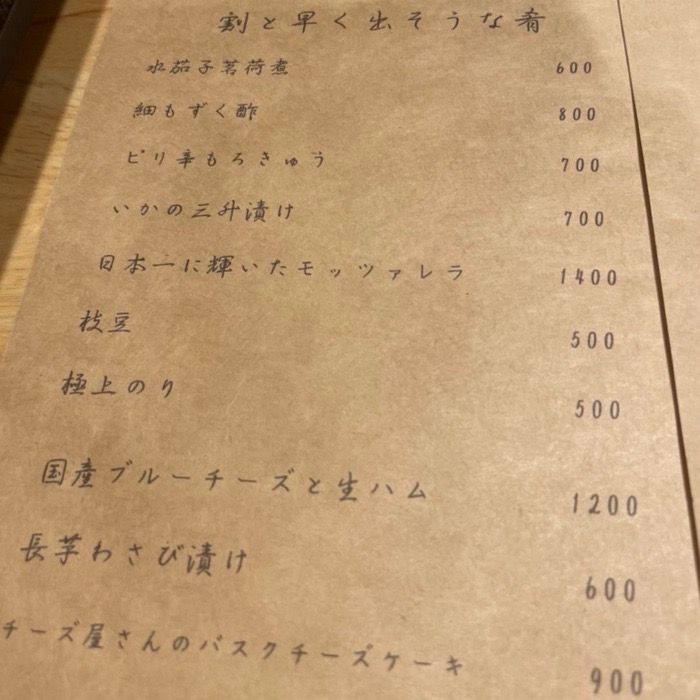 割と早く出そうな肴
水茄子茗荷煮 600
細もずく酢 800
ピリ辛もろきゅう 700
いかの三升漬け 700
日本一に輝いたモッツァレラ 1400
枝豆 500
極上のり 500
国産ブルーチーズと生ハム 1200
長芋わさび漬け 600
チーズ屋さんのバスクチーズケーキ 900